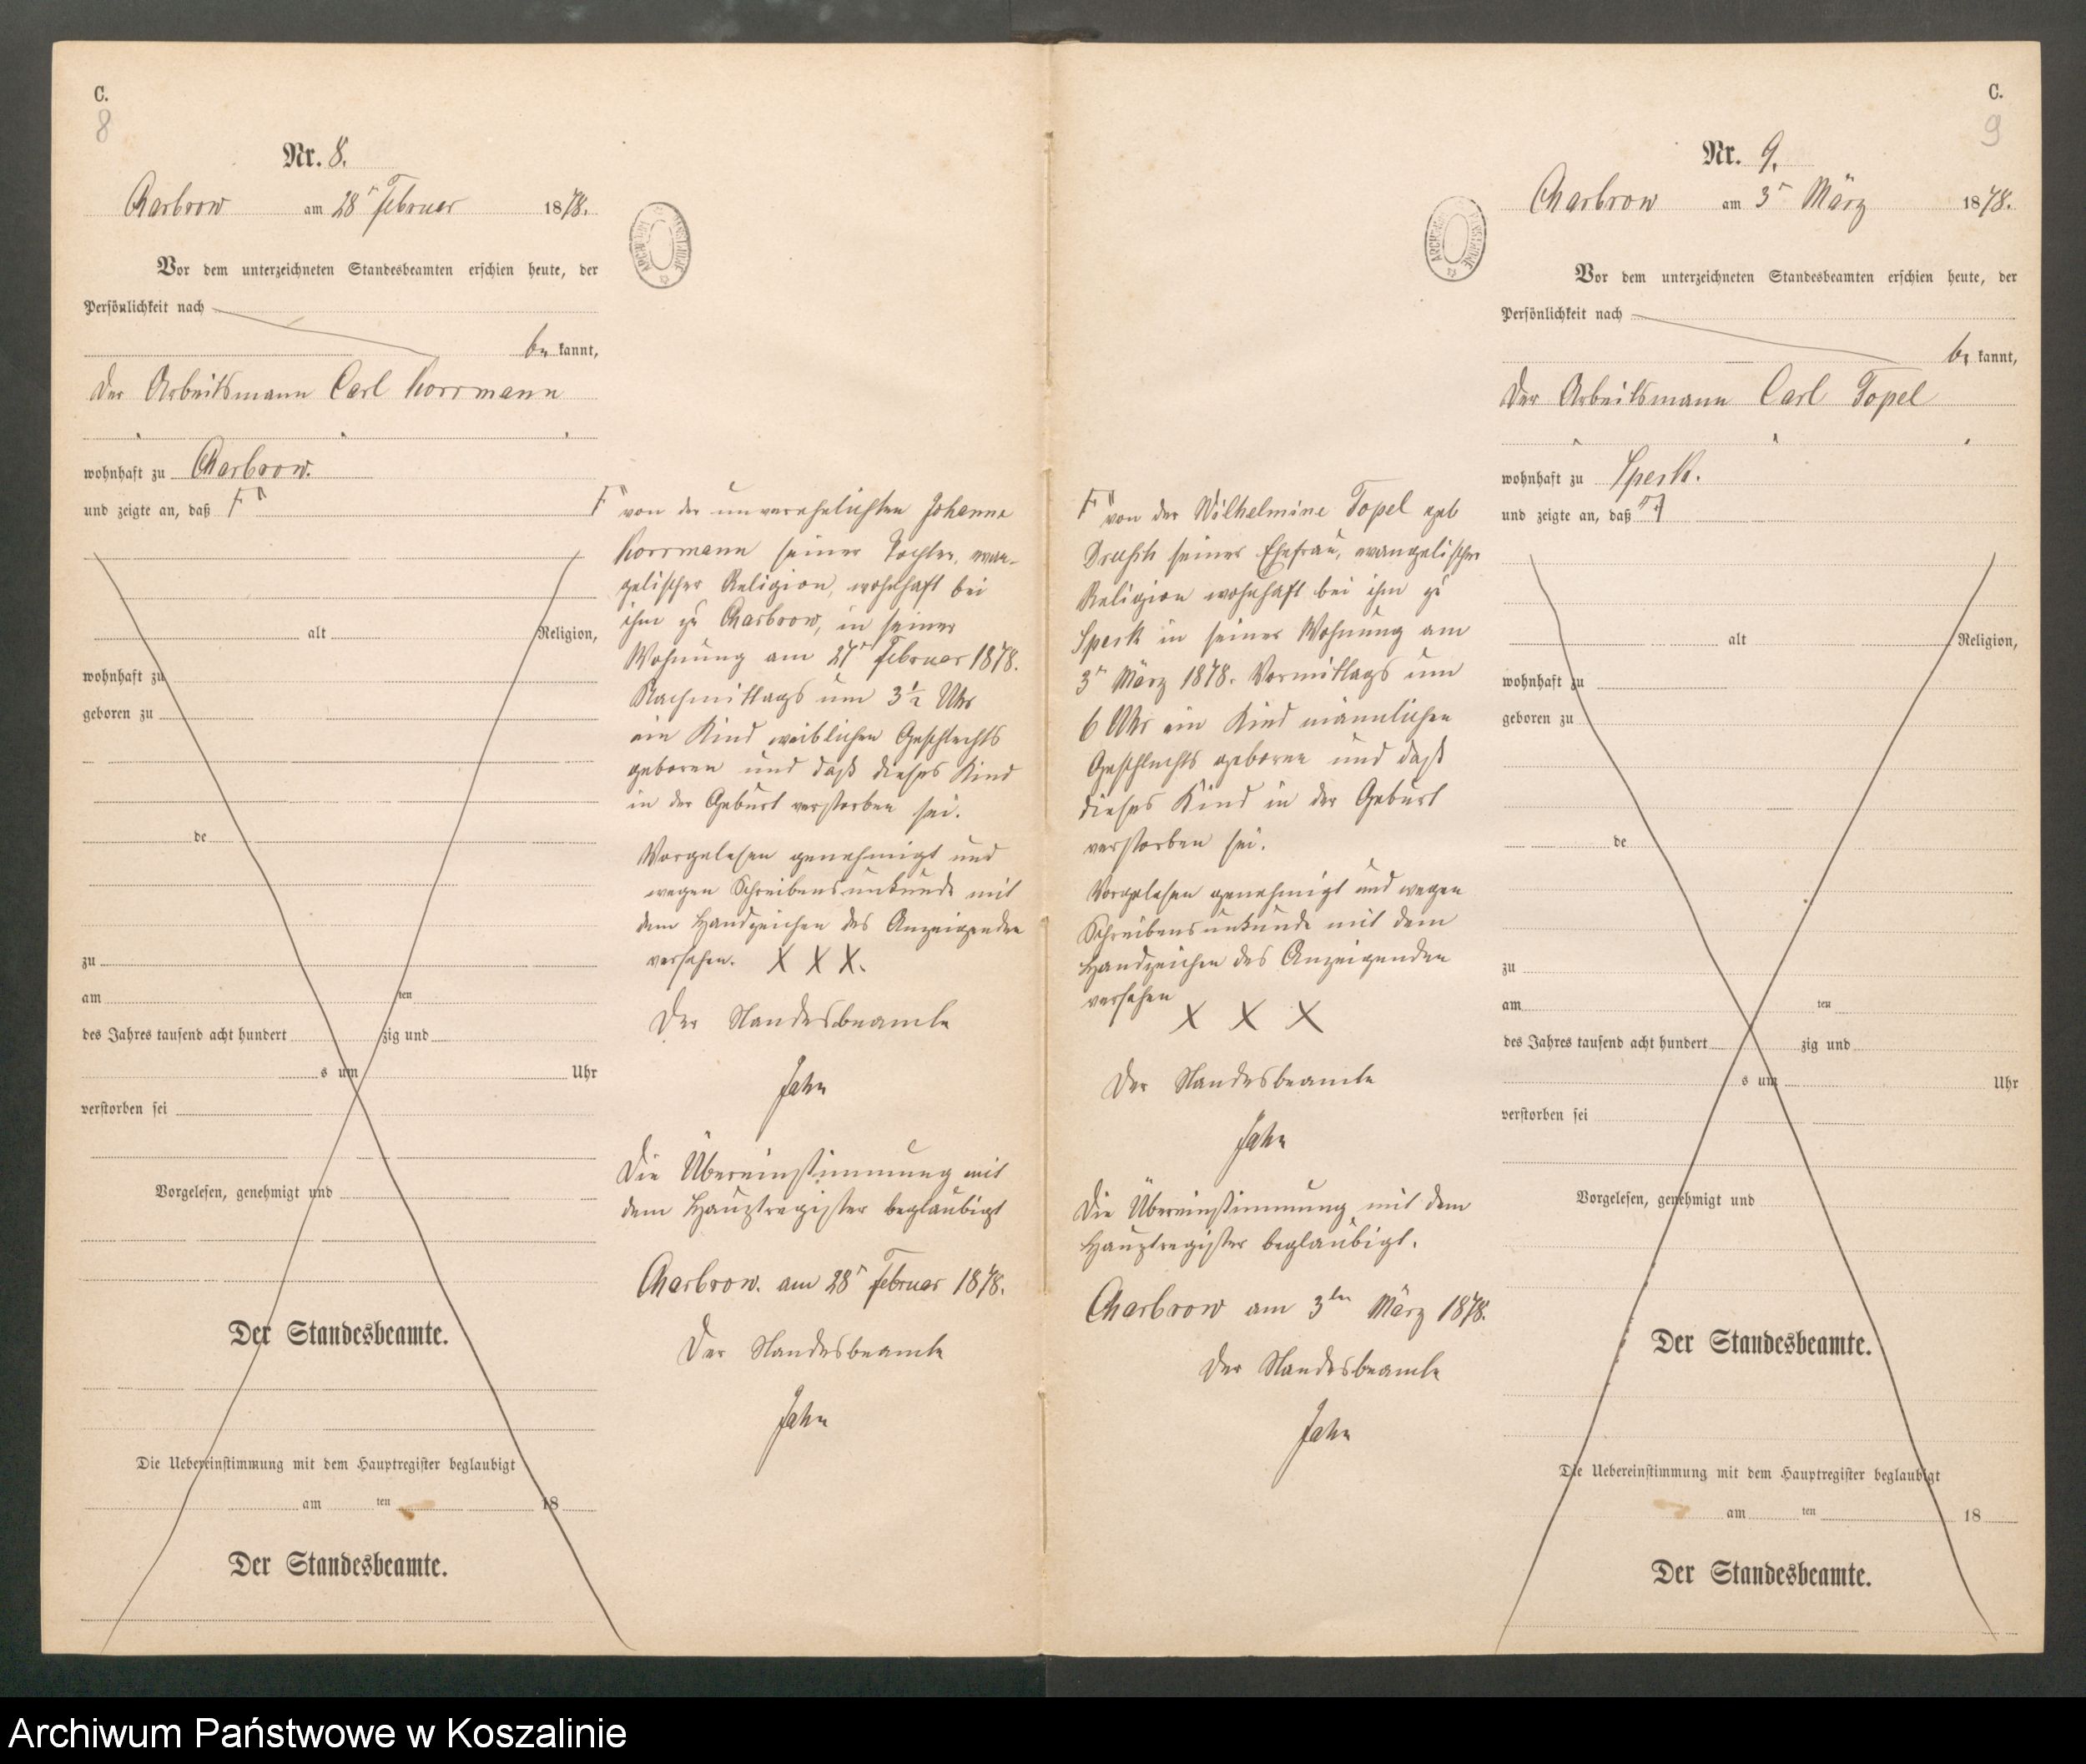 C.
8
Nr. 8.
Charbrow am 28ⁿ Februar 1878.
Vor dem unterzeichneten Standesbeamten erschien heute, der
Persönlichkeit nach
be kannt,
der Arbeitsmann Carl Korrmann
wohnhaft zu Charbrow.
und zeigte an, daß F
alt Religion,
wohnhaft zu
geboren zu
de
zu
am ten
des Jahres tausend acht hundert zig und
s um Uhr
verstorben sei
Vorgelesen, genehmigt und
Der Standesbeamte.
Die Uebereinstimmung mit dem Hauptregister beglaubigt
am ten 18
Der Standesbeamte.
F von der unverehelichten Johanne
Korrmann seiner Tochter, evan-
gelischer Religion, wohnhaft bei
ihm zu Charbrow, in seiner
Wohnung am 27ⁿ Februar 1878.
Nachmittags um 3½ Uhr
ein Kind weiblichen Geschlechts
geboren und daß dieses Kind
in der Geburt verstorben sei.
Vorgelesen genehmigt und
wegen Schreibensunkunde mit
dem Handzeichen des Anzeigenden
versehen. X X X.
Der Standesbeamte
Jahn
Die Übereinstimmung mit
dem Hauptregister beglaubigt
Charbrow. am 28ⁿ Februar 1878.
Der Standesbeamte
Jahn
F von der Wilhelmine Topel geb
seiner Ehefrau, evangelischer
Religion wohnhaft bei ihm zu
Speck in seiner Wohnung am
3ⁿ März 1878. Vormittags um
6 Uhr ein Kind männlichen
Geschlechts geboren und daß
dieses Kind in der Geburt
verstorben sei.
Vorgelesen genehmigt und wegen
Schreibensunkunde mit dem
Handzeichen des Anzeigenden
versehen
X X X
Der Standesbeamte
Jahn
Die Übereinstimmung mit dem
Hauptregister beglaubigt.
Charbrow am 3ten März 1878.
Der Standesbeamte
Jahn
C.
9
Nr. 9.
Charbrow am 3ⁿ März 1878.
Vor dem unterzeichneten Standesbeamten erschien heute, der
Persönlichkeit nach
be kannt,
Der Arbeitsmann Carl Topel
wohnhaft zu Speck.
und zeigte an, daß
alt Religion,
wohnhaft zu
geboren zu
de
zu
am ten
des Jahres tausend acht hundert zig und
s um Uhr
verstorben sei
Vorgelesen, genehmigt und
Der Standesbeamte.
Die Uebereinstimmung mit dem Hauptregister beglaubigt
am ten 18
Der Standesbeamte.
Archiwum Państwowe w Koszalinie